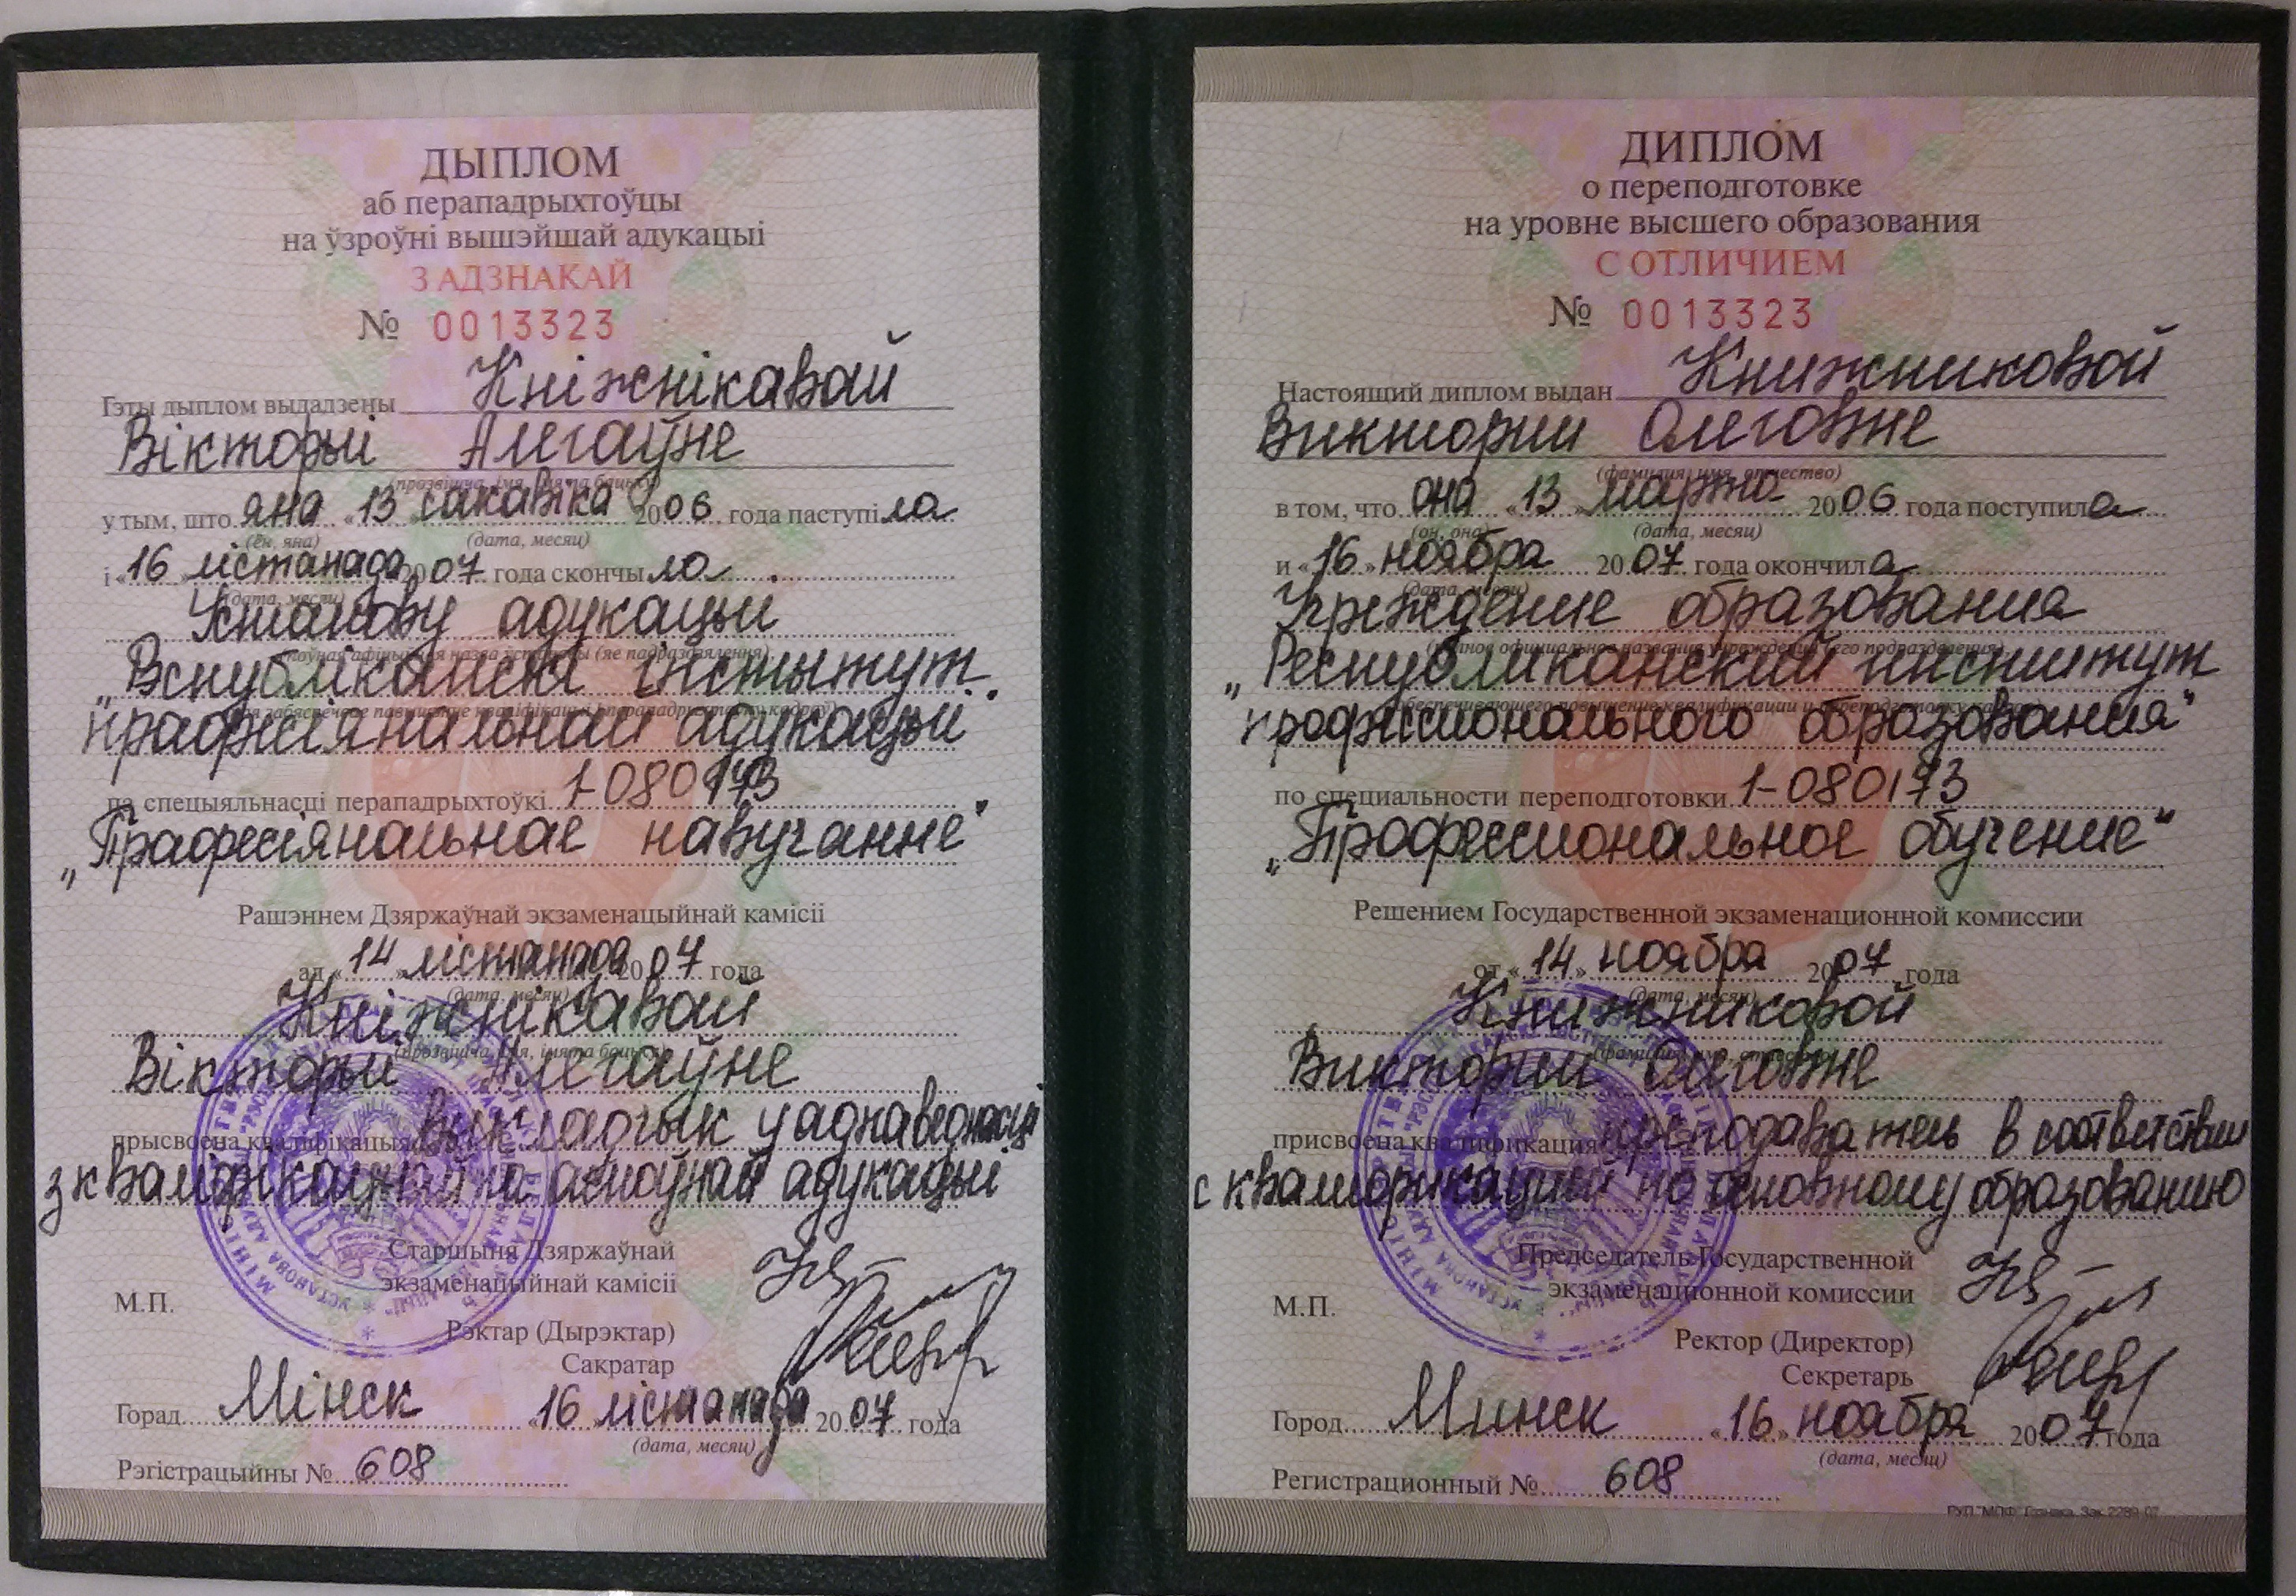 ДЫПЛОМ
аб перападрыхтоўцы
на ўзроўні вышэйшай адукацыі
З АДЗНАКАЙ
№ 0013323
Гэты дыплом выдадзены Кніжнікавай
Вікторыі Алегаўне
(прозвішча, імя, імя па бацьку)
у тым, што яна «13» сакавіка 2006 года паступіла
(ён, яна) (дата, месяц)
і «16 лістапада 2007 года скончыла
(дата, месяц)
Установу адукацыі
поўная афіцыйная назва ўстановы (яе падраздзялення),
„Рэспубліканскі інстытут
прафесіянальнай адукацыі
па спецыяльнасці перападрыхтоўкі 1-080173
„Прафесіянальнае навучанне"
Рашэннем Дзяржаўнай экзаменацыйнай камісіі
ад «14» лістапада 2007 года
(дата, месяц)
Кніжнікавай
(прозвішча, імя, імя па бацьку)
Вікторыі Алегаўне
прысвоена кваліфікацыя выкладчык у адпаведнасці
з кваліфікацыяй па асноўнай адукацыі
Старшыня Дзяржаўнай
экзаменацыйнай камісіі
М.П.
Рэктар (Дырэктар)
Сакратар
Горад Мінск «16 лістапада 2007 года
(дата, месяц)
Рэгістрацыйны № 608
ДИПЛОМ
о переподготовке
на уровне высшего образования
С ОТЛИЧИЕМ
№ 0013323
Настоящий диплом выдан Книжниковой
Виктории Олеговне
(фамилия, имя, отчество)
в том, что она «13» марта 2006 года поступила
(он, она) (дата, месяц)
и «16» ноября 2007 года окончила
(дата, месяц)
Учреждение образования
полное официальное название учреждения (его подразделения),
„Республиканский институт
обеспечивающего повышение квалификации и переподготовку кадров)
профессионального образования"
по специальности переподготовки 1-080173
„Профессиональное обучение"
Решением Государственной экзаменационной комиссии
от «14» ноября 2007 года
(дата, месяц)
Книжниковой
(фамилия, имя, отчество)
Виктории Олеговне
присвоена квалификация преподаватель в соответствии
с квалификацией по основному образованию
Председатель Государственной
экзаменационной комиссии
М.П.
Ректор (Директор)
Секретарь
Город Минск «16» ноября 2007 года
(дата, месяц)
Регистрационный № 608